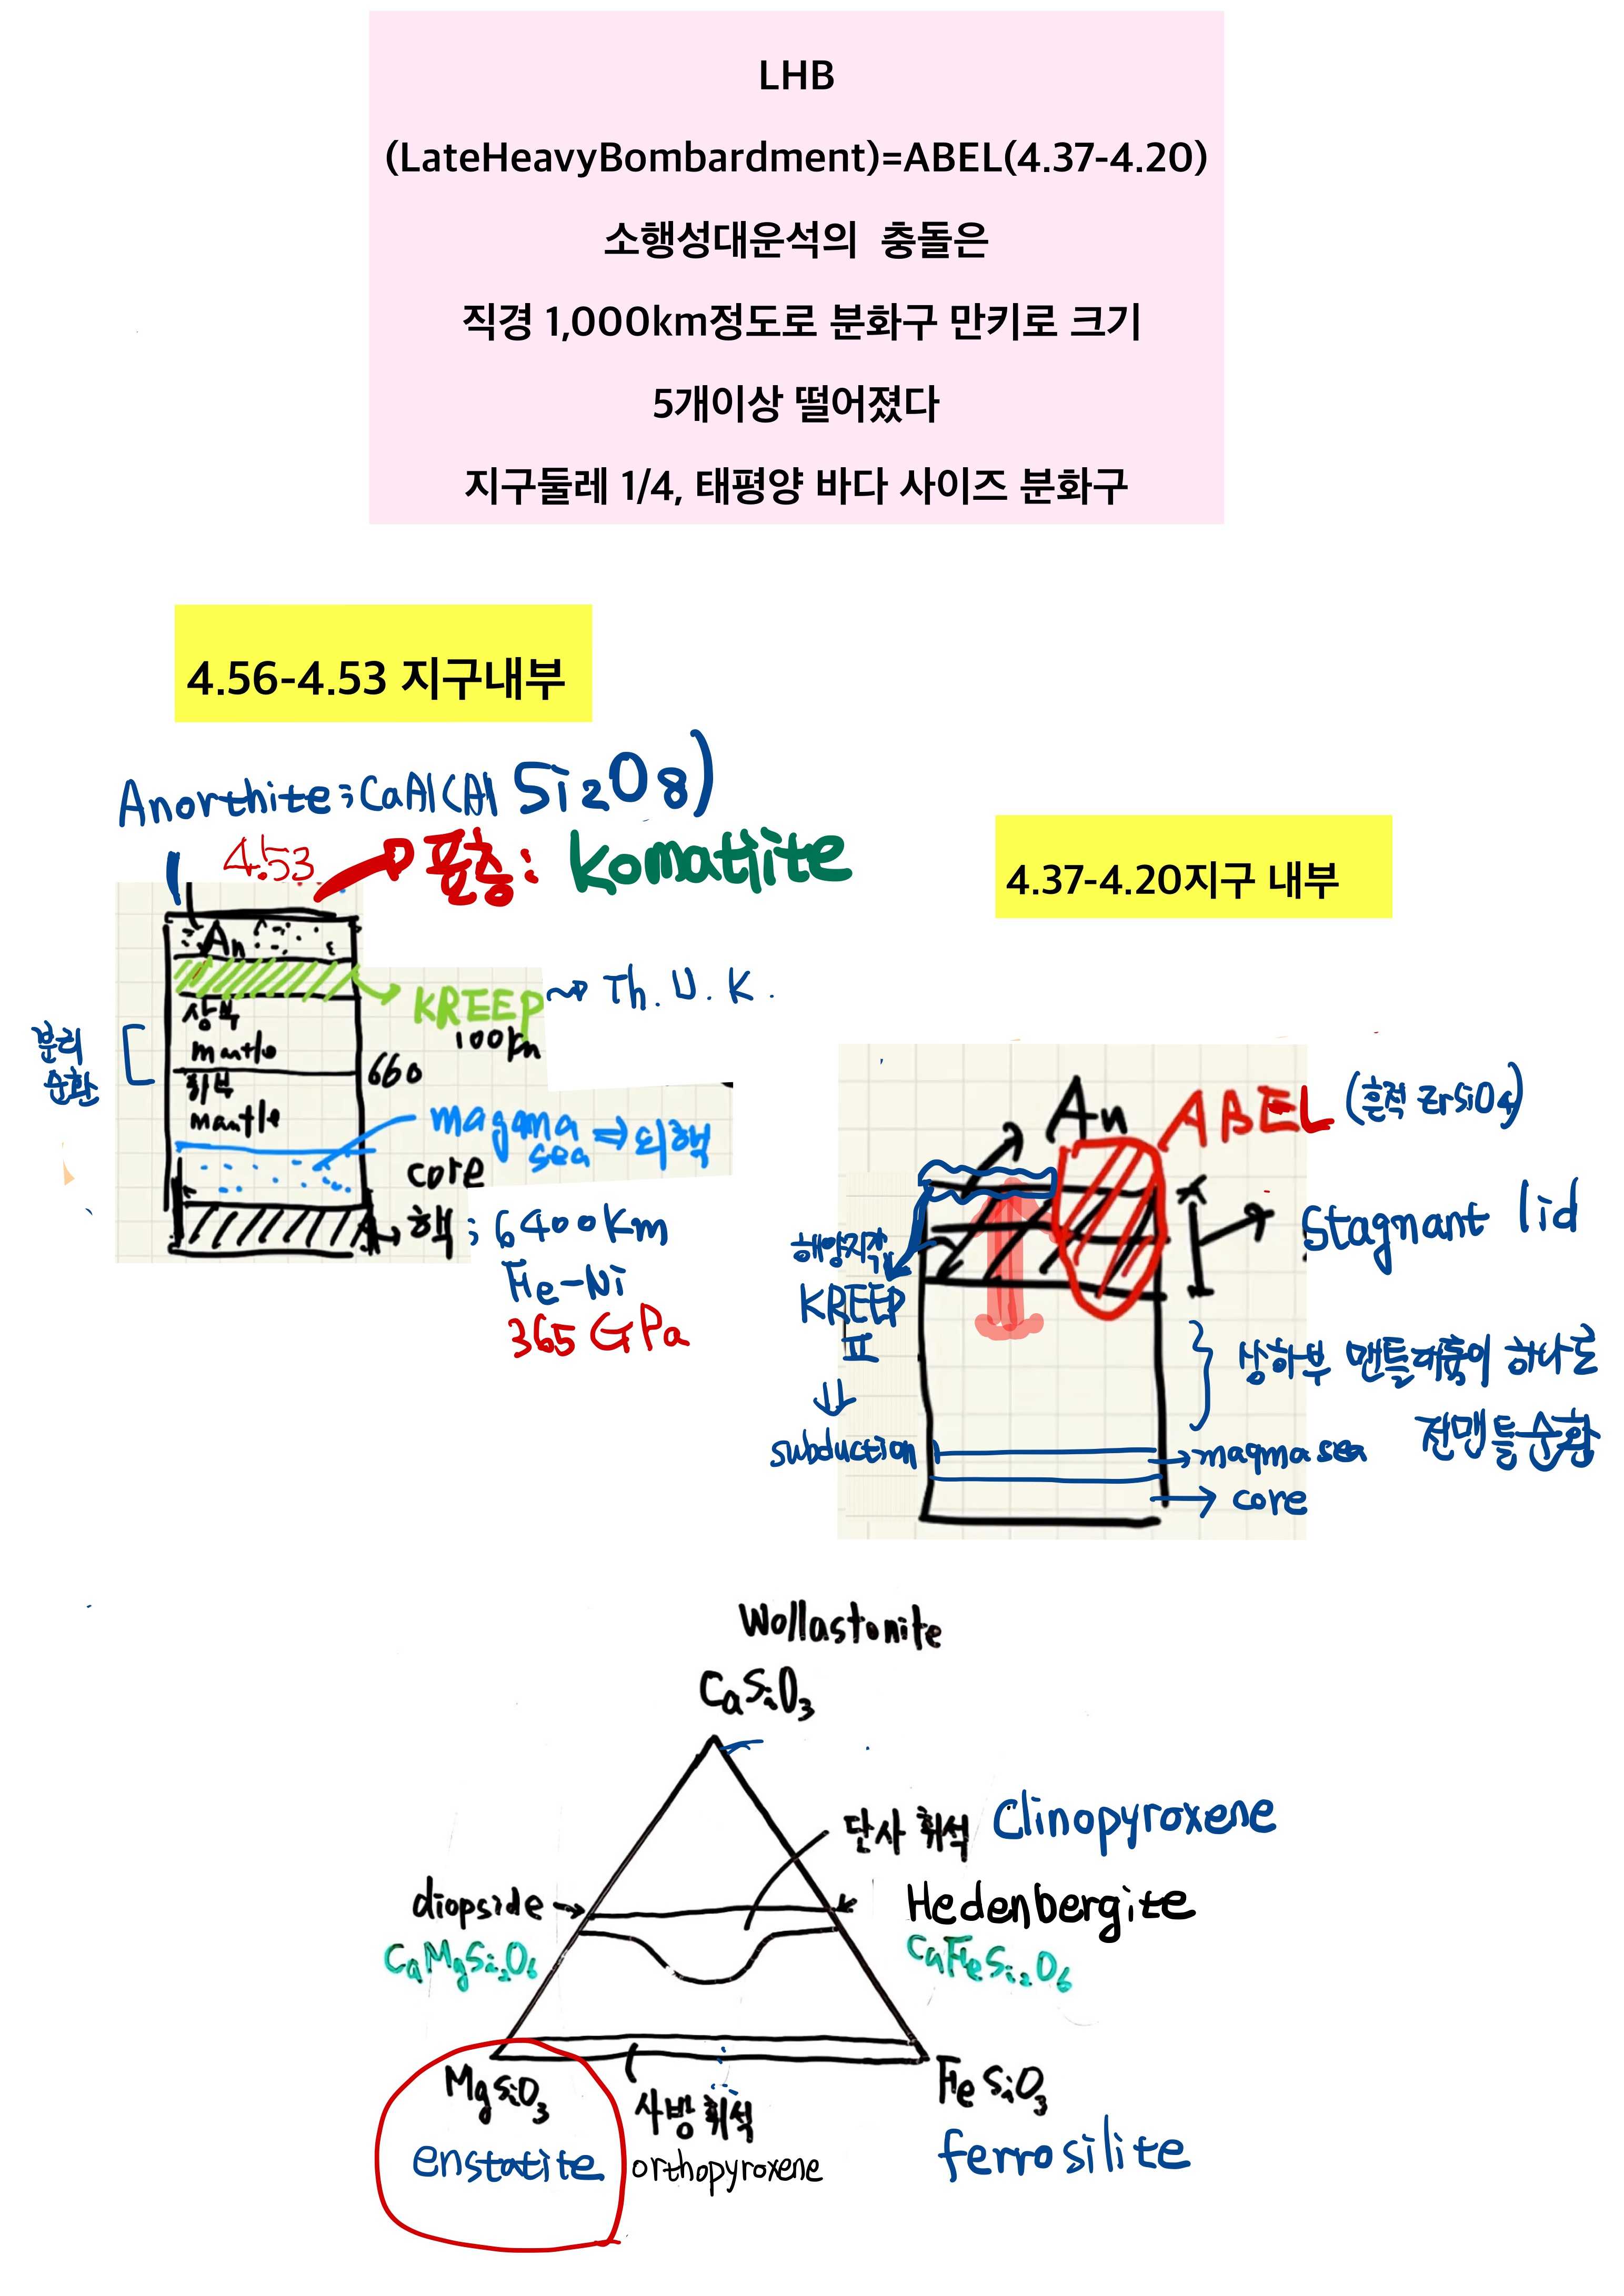 LHB
(LateHeavyBombardment)=ABEL(4.37-4.20)
소행성대운석의 충돌은
직경 1,000km정도로 분화구 만키로 크기
5개이상 떨어졌다
지구둘레 1/4, 태평양 바다 사이즈 분화구
4.56-4.53 지구내부
Anorthite: CaAl(Al Si2O8)
4.53
표층: Komatiite
An
KREEP Th. U. K.
100km
상부
mantle
660
하부
mantle
분리
순환
magma
sea ⇒ 외핵
core
핵 : 6400Km
Fe-Ni
365 GPa
4.37-4.20지구 내부
An
ABEL (흔적 ZrSiO4)
Stagnant lid
해양지각
KREEP
⇓
subduction
상하부 맨틀대류이 하나로
전맨틀순환
magma sea
core
Wollastonite
CaSiO3
단사 휘석 Clinopyroxene
diopside →
Hedenbergite
CaMgSi2O6
CaFeSi2O6
MgSiO3
FeSiO3
사방 휘석
enstatite
orthopyroxene
ferrosilite